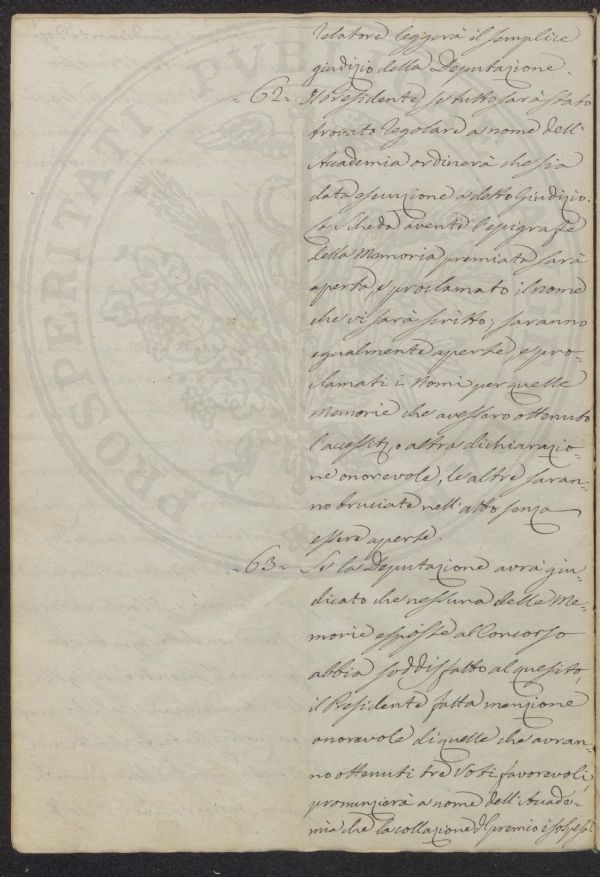 relatore leggerà il semplice
giudizio della Deputazione.
=62= Il Presidente se tutto sarà stato
trovato regolare a nome dell'
Accademia ordinerà che sia
data esecuzione a detto Giudizio.
La Scheda avente l'epigrafe
della Memoria premiata sarà
aperta, e proclamato il nome
che vi sarà scritto; saranno
egualmente aperte, e pro=
clamati i Nomi per quelle
Memorie che avessero ottenuto
l'accessit, o altra dichiarazio=
ne onorevole, le altre saran=
no bruciate nell'atto senza
essere aperte.
=63= Se la Deputazione avrà giu=
dicato che nessuna delle Me=
morie esposte al Concorso
abbia soddisfatto al quesito,
il Presidente fatta menzione
onorevole di quelle che avran=
no ottenuti tre Voti favorevoli,
pronunzierà a nome dell'Accade=
mia che la collazione del premio è sospesa
PROSPERITATI PUB